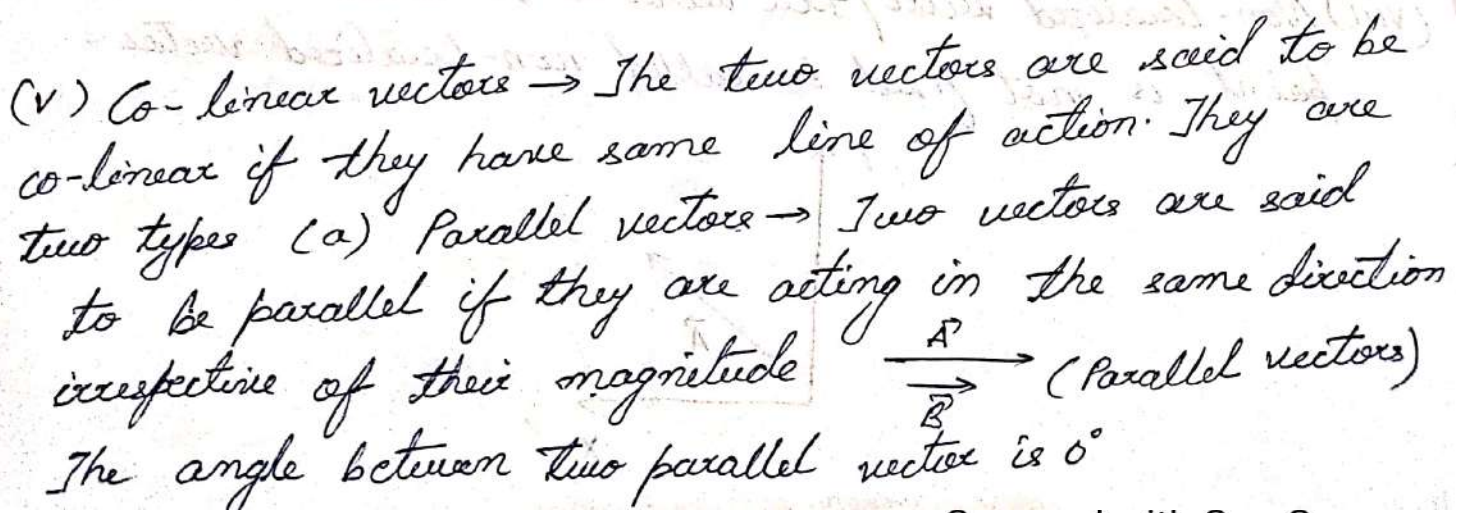 (v) Co-linear vectors → The two vectors are said to be
co-linear if they have same line of action. They are
two types (a) Parallel vectors → Two vectors are said
to be parallel if they are acting in the same direction
irrespective of their magnitude A⃗ B⃗ (Parallel vectors)
The angle between two parallel vector is 0°